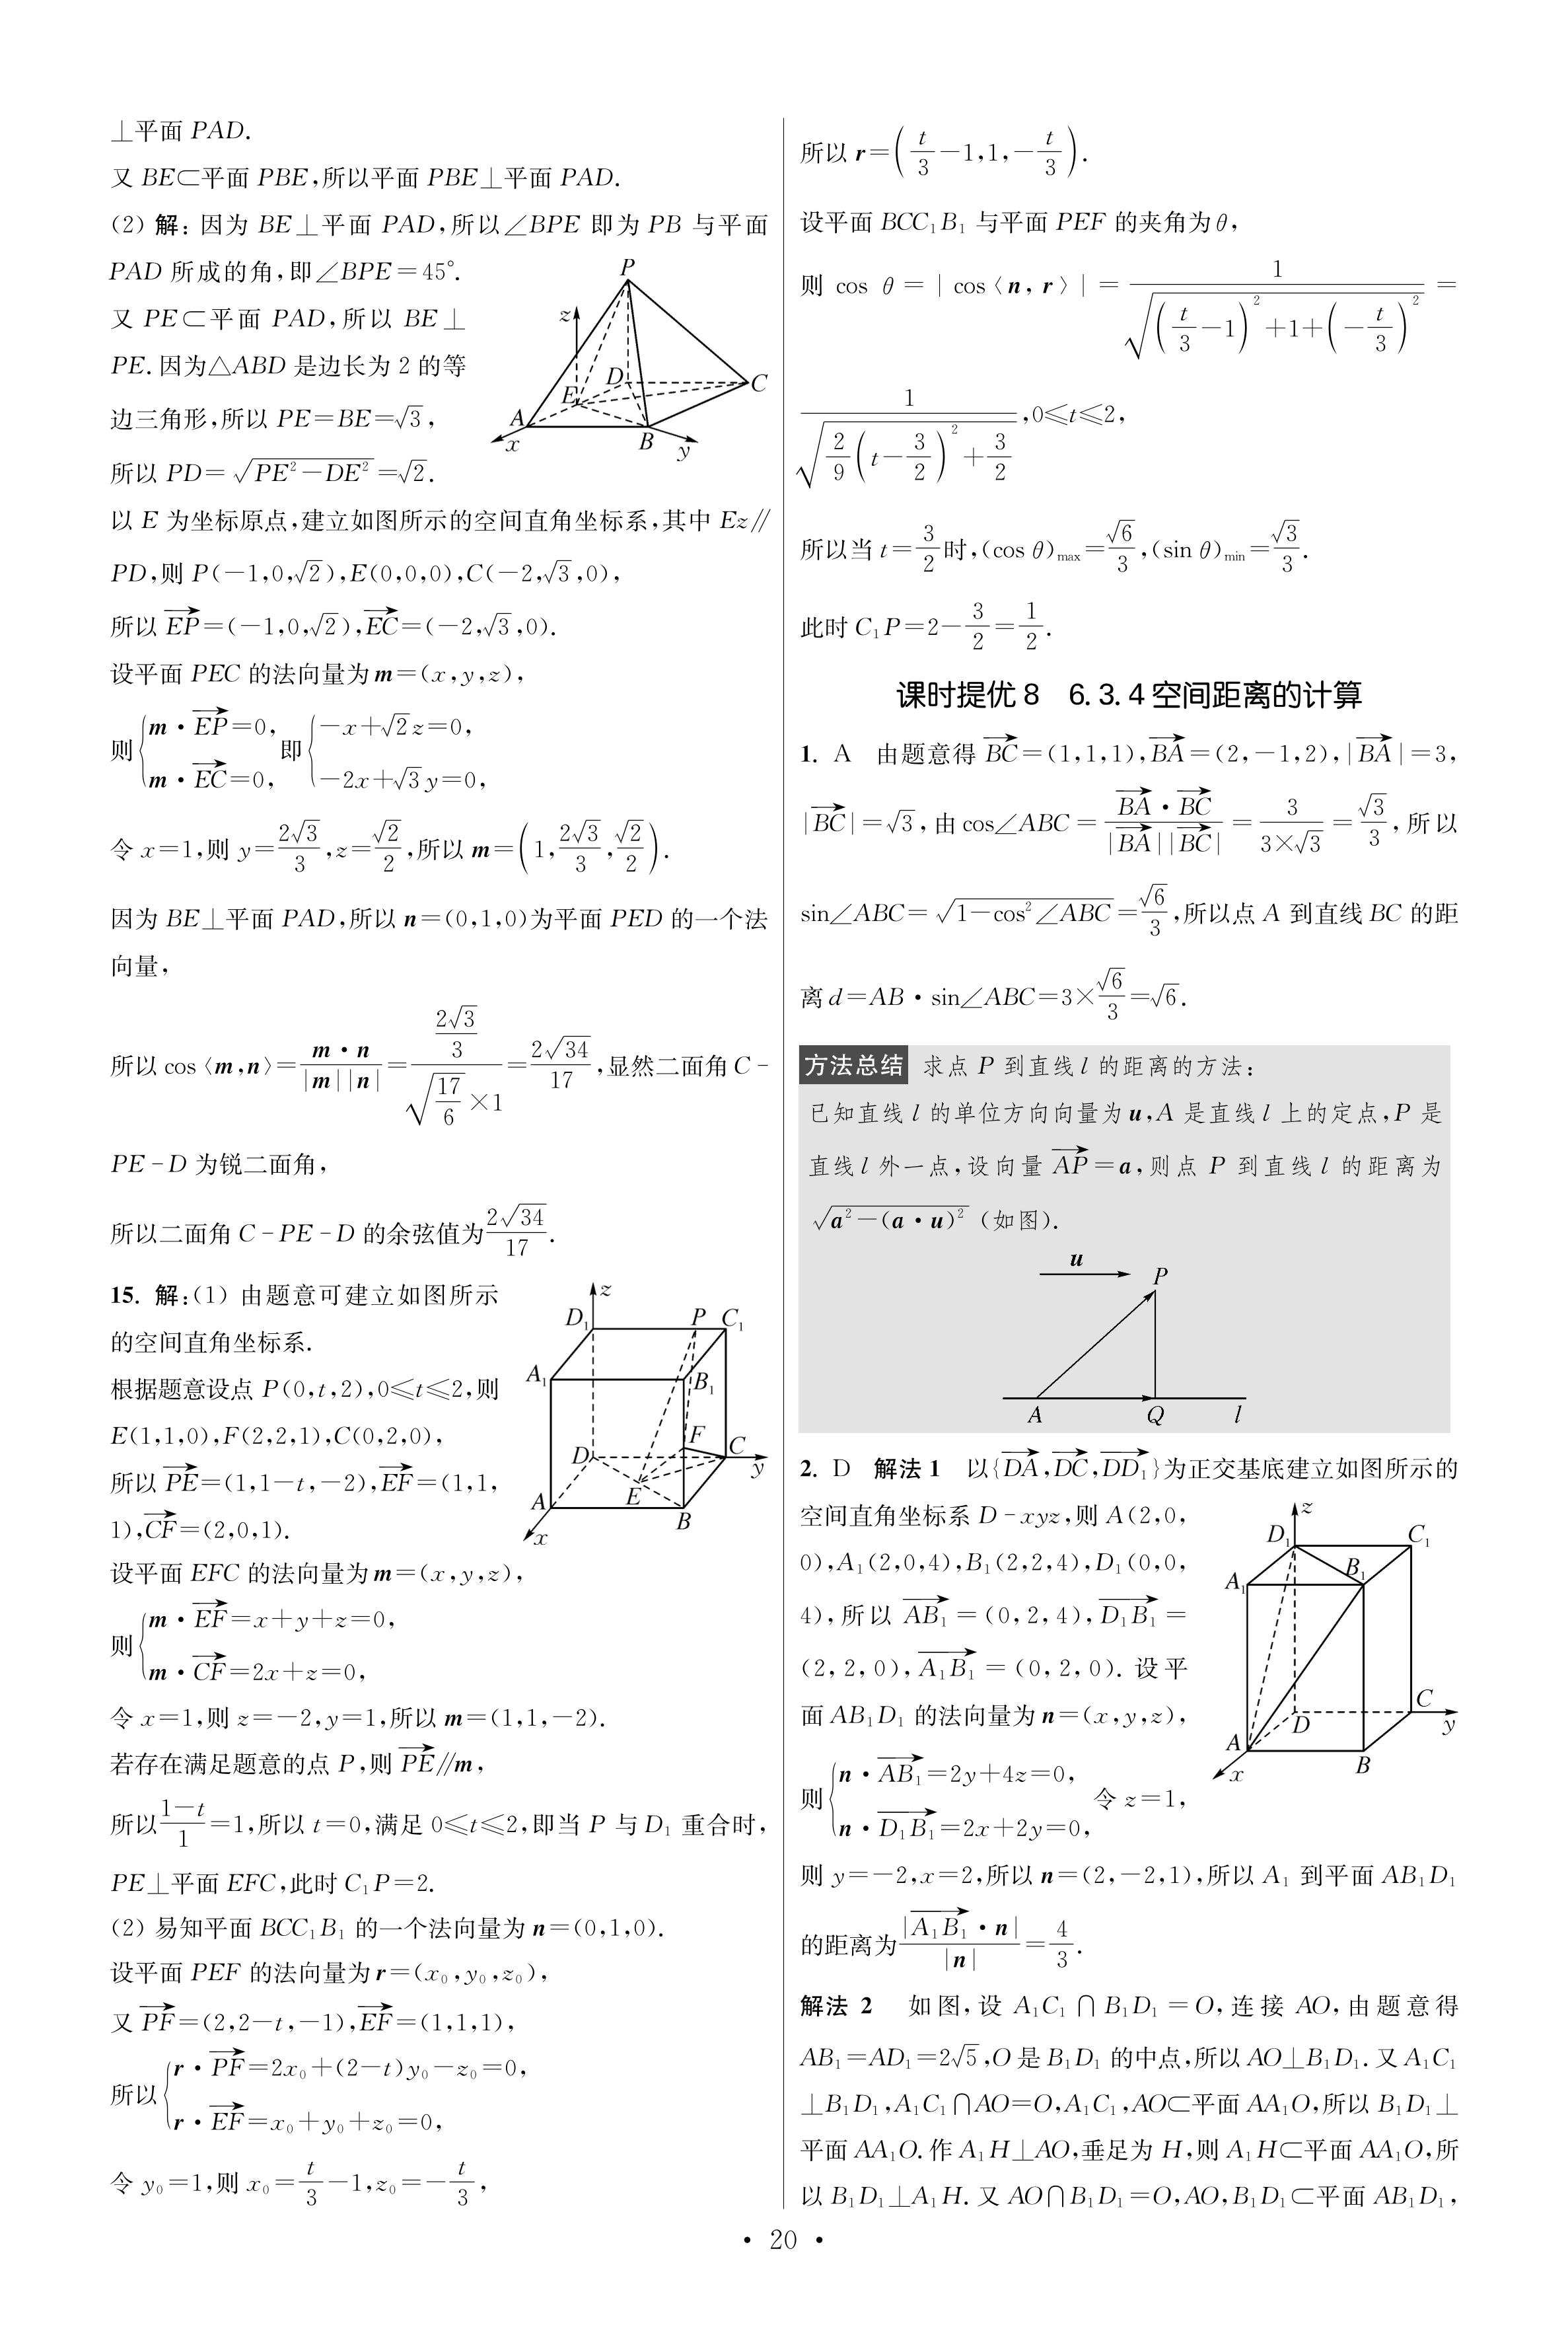 ⊥平面 PAD.
又 BE⊂平面 PBE,所以平面 PBE⊥平面 PAD.
(2) 解: 因为 BE⊥平面 PAD,所以∠BPE 即为 PB 与平面
PAD 所成的角,即∠BPE=45°.
又 PE⊂平面 PAD,所以 BE⊥
PE.因为△ABD 是边长为 2 的等
边三角形,所以 PE=BE=√3,
所以 PD=√(PE²-DE²)=√2.
P
z
D
C
E
A
x
B
y
以 E 为坐标原点,建立如图所示的空间直角坐标系,其中 Ez∥
PD,则 P(-1,0,√2),E(0,0,0),C(-2,√3,0),
所以 EP→=(-1,0,√2),EC→=(-2,√3,0).
设平面 PEC 的法向量为 m=(x,y,z),
则{m·EP→=0, m·EC→=0, 即{-x+√2z=0, -2x+√3y=0,
令 x=1,则 y=2√3/3,z=√2/2,所以 m=(1,2√3/3,√2/2).
因为 BE⊥平面 PAD,所以 n=(0,1,0)为平面 PED 的一个法
向量,
所以 cos〈m,n〉=m·n/(|m||n|)=(2√3/3)/(√(17/6)×1)=2√34/17,显然二面角 C-
PE-D 为锐二面角,
所以二面角 C-PE-D 的余弦值为2√34/17.
15. 解:(1) 由题意可建立如图所示
的空间直角坐标系.
根据题意设点 P(0,t,2),0≤t≤2,则
E(1,1,0),F(2,2,1),C(0,2,0),
所以 PE→=(1,1-t,-2),EF→=(1,1,
1),CF→=(2,0,1).
z
D₁
P
C₁
A₁
B₁
F
D
C
y
E
A
B
x
设平面 EFC 的法向量为 m=(x,y,z),
则{m·EF→=x+y+z=0, m·CF→=2x+z=0,
令 x=1,则 z=-2,y=1,所以 m=(1,1,-2).
若存在满足题意的点 P,则 PE→∥m,
所以(1-t)/1=1,所以 t=0,满足 0≤t≤2,即当 P 与 D₁ 重合时,
PE⊥平面 EFC,此时 C₁P=2.
(2) 易知平面 BCC₁B₁ 的一个法向量为 n=(0,1,0).
设平面 PEF 的法向量为 r=(x₀,y₀,z₀),
又 PF→=(2,2-t,-1),EF→=(1,1,1),
所以{r·PF→=2x₀+(2-t)y₀-z₀=0, r·EF→=x₀+y₀+z₀=0,
令 y₀=1,则 x₀=t/3-1,z₀=-t/3,
所以 r=(t/3-1,1,-t/3).
设平面 BCC₁B₁ 与平面 PEF 的夹角为θ,
则 cos θ=|cos〈n,r〉|=1/√((t/3-1)²+1+(-t/3)²)=
1/√(2/9(t-3/2)²+3/2),0≤t≤2,
所以当 t=3/2时,(cos θ)max=√6/3,(sin θ)min=√3/3.
此时 C₁P=2-3/2=1/2.
课时提优 8 6.3.4 空间距离的计算
1. A 由题意得 BC→=(1,1,1),BA→=(2,-1,2),|BA→|=3,
|BC→|=√3,由 cos∠ABC=BA→·BC→/(|BA→||BC→|)=3/(3×√3)=√3/3,所以
sin∠ABC=√(1-cos²∠ABC)=√6/3,所以点 A 到直线 BC 的距
离 d=AB·sin∠ABC=3×√6/3=√6.
方法总结 求点 P 到直线 l 的距离的方法:
已知直线 l 的单位方向向量为 u,A 是直线 l 上的定点,P 是
直线 l 外一点,设向量 AP→=a,则点 P 到直线 l 的距离为
√(a²-(a·u)²) (如图).
u
P
A
Q
l
2. D 解法 1 以{DA→,DC→,DD₁→}为正交基底建立如图所示的
空间直角坐标系 D-xyz,则 A(2,0,
0),A₁(2,0,4),B₁(2,2,4),D₁(0,0,
4),所以 AB₁→=(0,2,4),D₁B₁→=
(2,2,0),A₁B₁→=(0,2,0).设平
面 AB₁D₁ 的法向量为 n=(x,y,z),
则{n·AB₁→=2y+4z=0, n·D₁B₁→=2x+2y=0, 令 z=1,
z
D₁
C₁
A₁
B₁
D
C
y
A
B
x
则 y=-2,x=2,所以 n=(2,-2,1),所以 A₁ 到平面 AB₁D₁
的距离为|A₁B₁→·n|/|n|=4/3.
解法 2 如图,设 A₁C₁∩B₁D₁=O,连接 AO,由题意得
AB₁=AD₁=2√5,O 是 B₁D₁ 的中点,所以 AO⊥B₁D₁.又 A₁C₁
⊥B₁D₁,A₁C₁∩AO=O,A₁C₁,AO⊂平面 AA₁O,所以 B₁D₁⊥
平面 AA₁O.作 A₁H⊥AO,垂足为 H,则 A₁H⊂平面 AA₁O,所
以 B₁D₁⊥A₁H.又 AO∩B₁D₁=O,AO,B₁D₁⊂平面 AB₁D₁,
· 20 ·